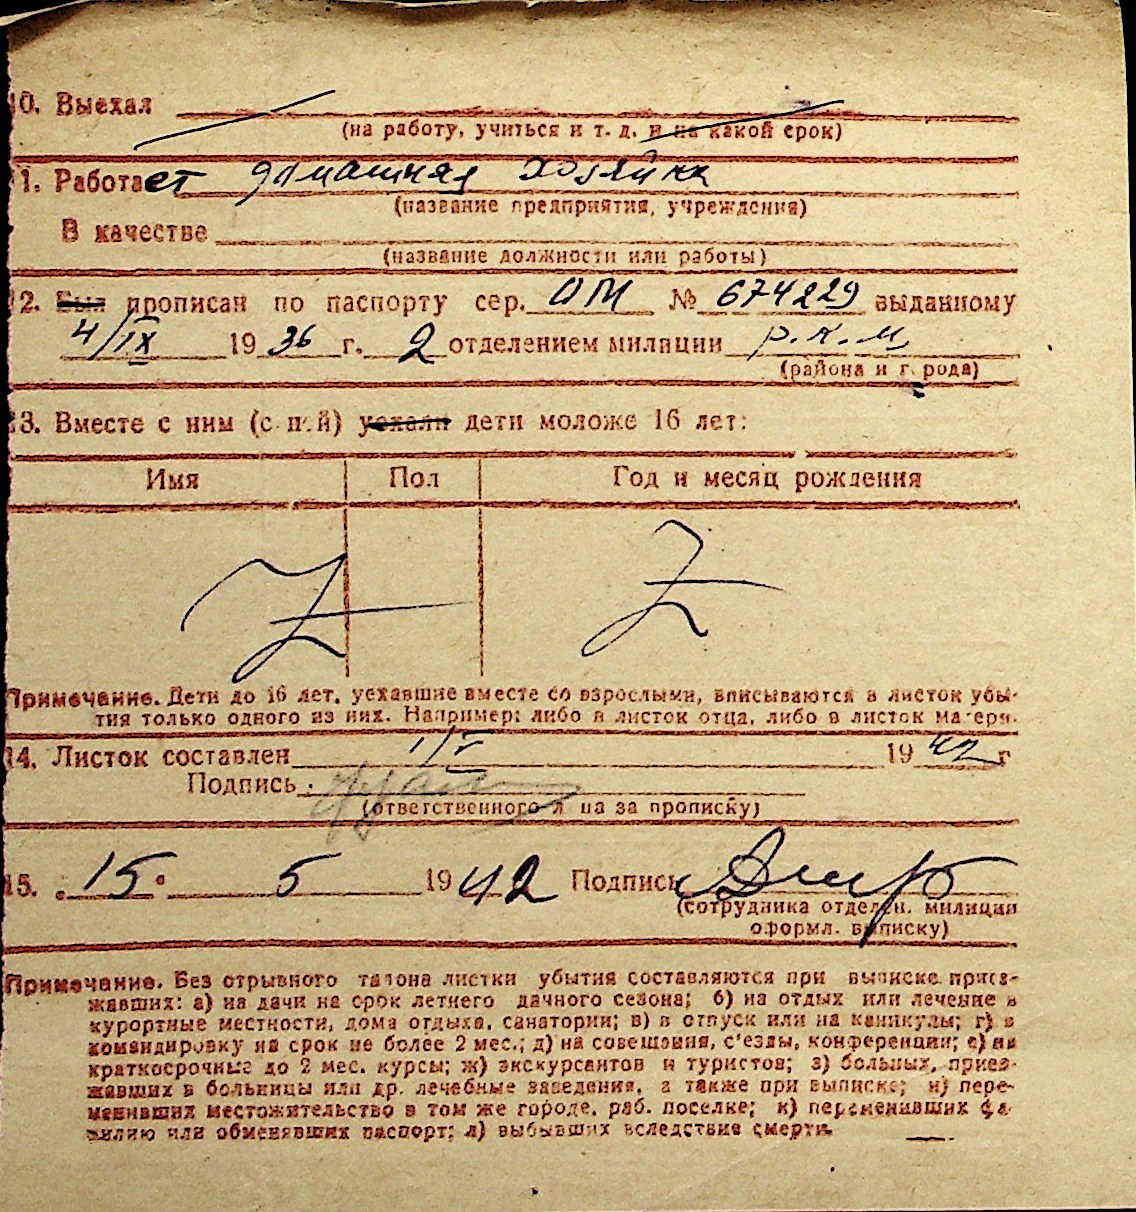 10. Выехал
(на работу, учиться и т. д. и на какой срок)
11. Работает домашняя хозяйка
(название предприятия, учреждения)
В качестве
(название должности или работы)
12. Был прописан по паспорту сер. ОМ № 674229 выданному
4/IX 1936 г. 2 отделением милиции Р.К.М.
(района и города)
13. Вместе с ним (с ней) уехали дети моложе 16 лет:
Имя Пол Год и месяц рождения
Z Z
Примечание. Дети до 16 лет, уехавшие вместе со взрослыми, вписываются в листок убы-
тия только одного из них. Например: либо в листок отца, либо в листок матери.
14. Листок составлен 1/V 1942 г
Подпись
(ответственного лица за прописку)
15. „15“ 5 1942 Подпись
(сотрудника отделен. милиции
оформл. выписку)
Примечание. Без отрывного талона листки убытия составляются при выписке приез-
жавших: а) на дачи на срок летнего дачного сезона; б) на отдых или лечение в
курортные местности, дома отдыха, санатории; в) в отпуск или на каникулы; г) в
командировку на срок не более 2 мес.; д) на совещания, с'езды, конференции; е) на
краткосрочные до 2 мес. курсы; ж) экскурсантов и туристов; з) больных, приез-
жавших в больницы или др. лечебные заведения, а также при выписке; и) пере-
менивших местожительство в том же городе, раб. поселке; к) переменивших фа-
милию или обменявших паспорт; л) выбывших вследствие смерти.